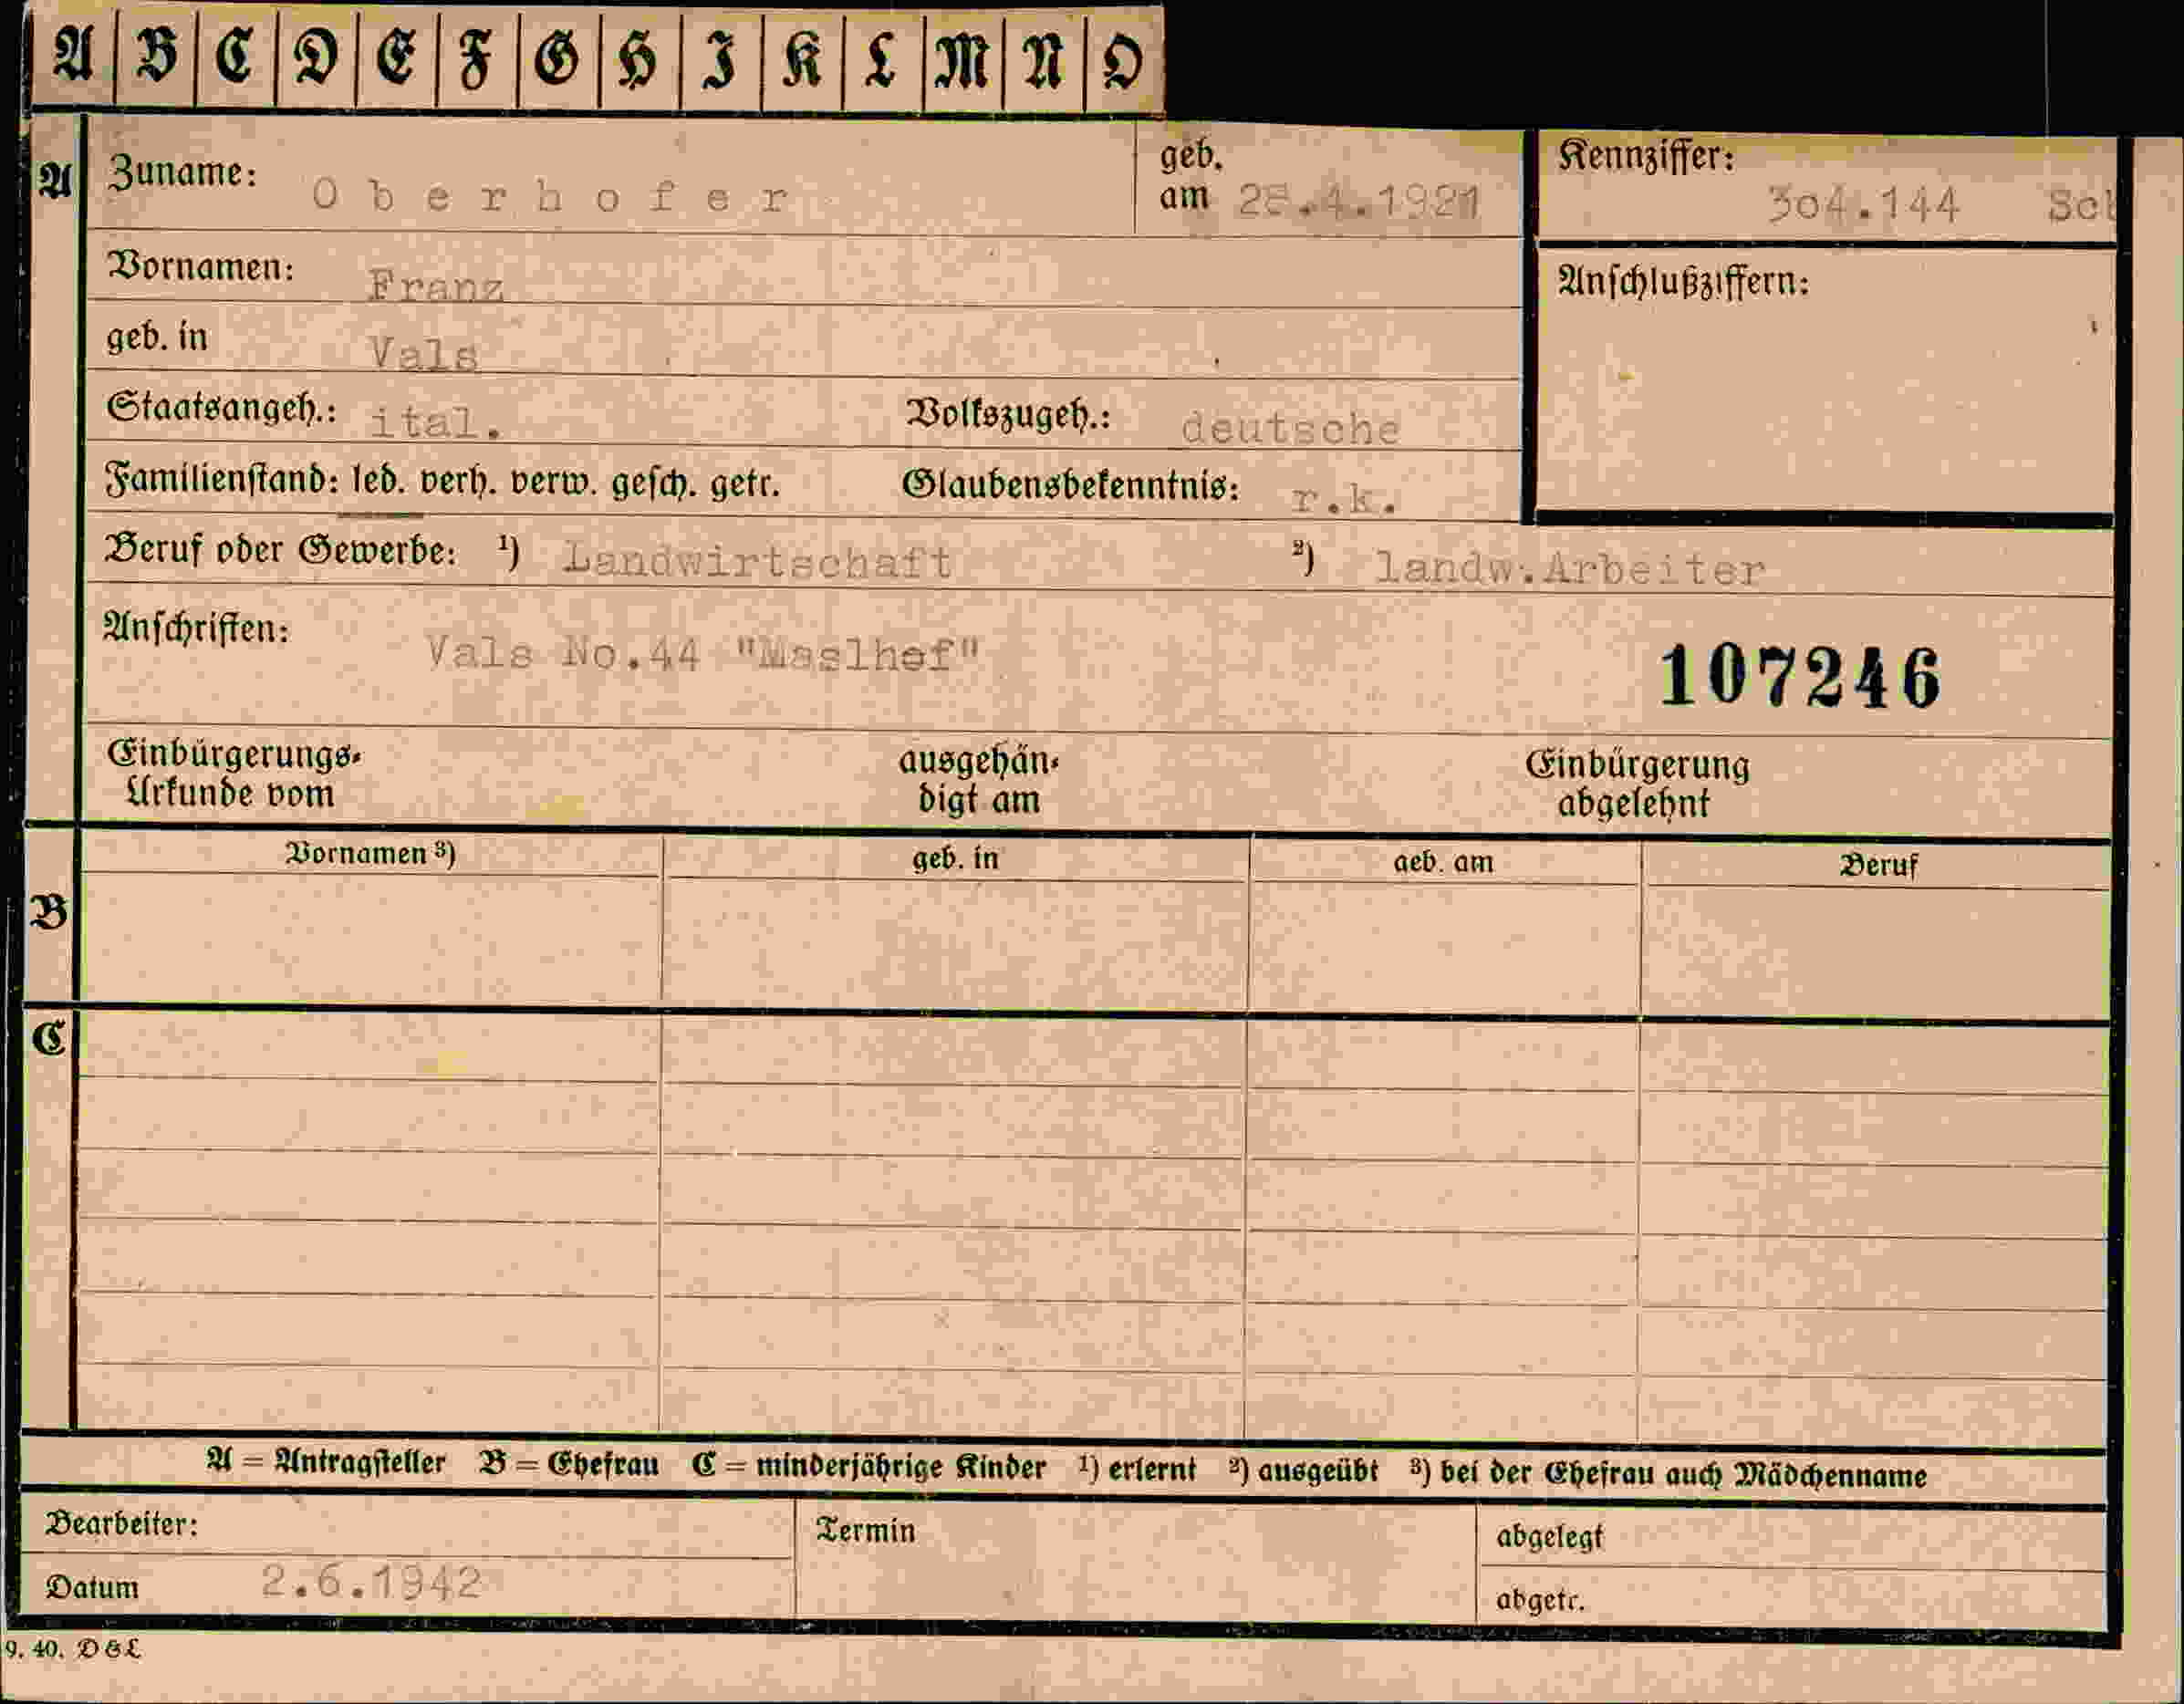 A B C D E F G H I K L M N O
A Zuname: Oberhofer geb. am 28.4.1921 Kennziffer: 304.144 Sch
Vornamen: Franz Anschlußziffern:
geb. in Vals
Staatsangeh.: ital. Volkszugeh.: deutsche
Familienstand: led. verh. verw. gesch. getr. Glaubensbekenntnis: r.k.
Beruf oder Gewerbe: ¹) Landwirtschaft ²) landw.Arbeiter
Anschriften: Vals No.44 "Maslhof"
107246
Einbürgerungs-Urkunde vom ausgehändigt am Einbürgerung abgelehnt
Vornamen ³) geb. in geb. am Beruf
B
C
A = Antragsteller B = Ehefrau C = minderjährige Kinder ¹) erlernt ²) ausgeübt ³) bei der Ehefrau auch Mädchenname
Bearbeiter: Termin abgelegt
Datum 2.6.1942 abgetr.
9. 40. D&L